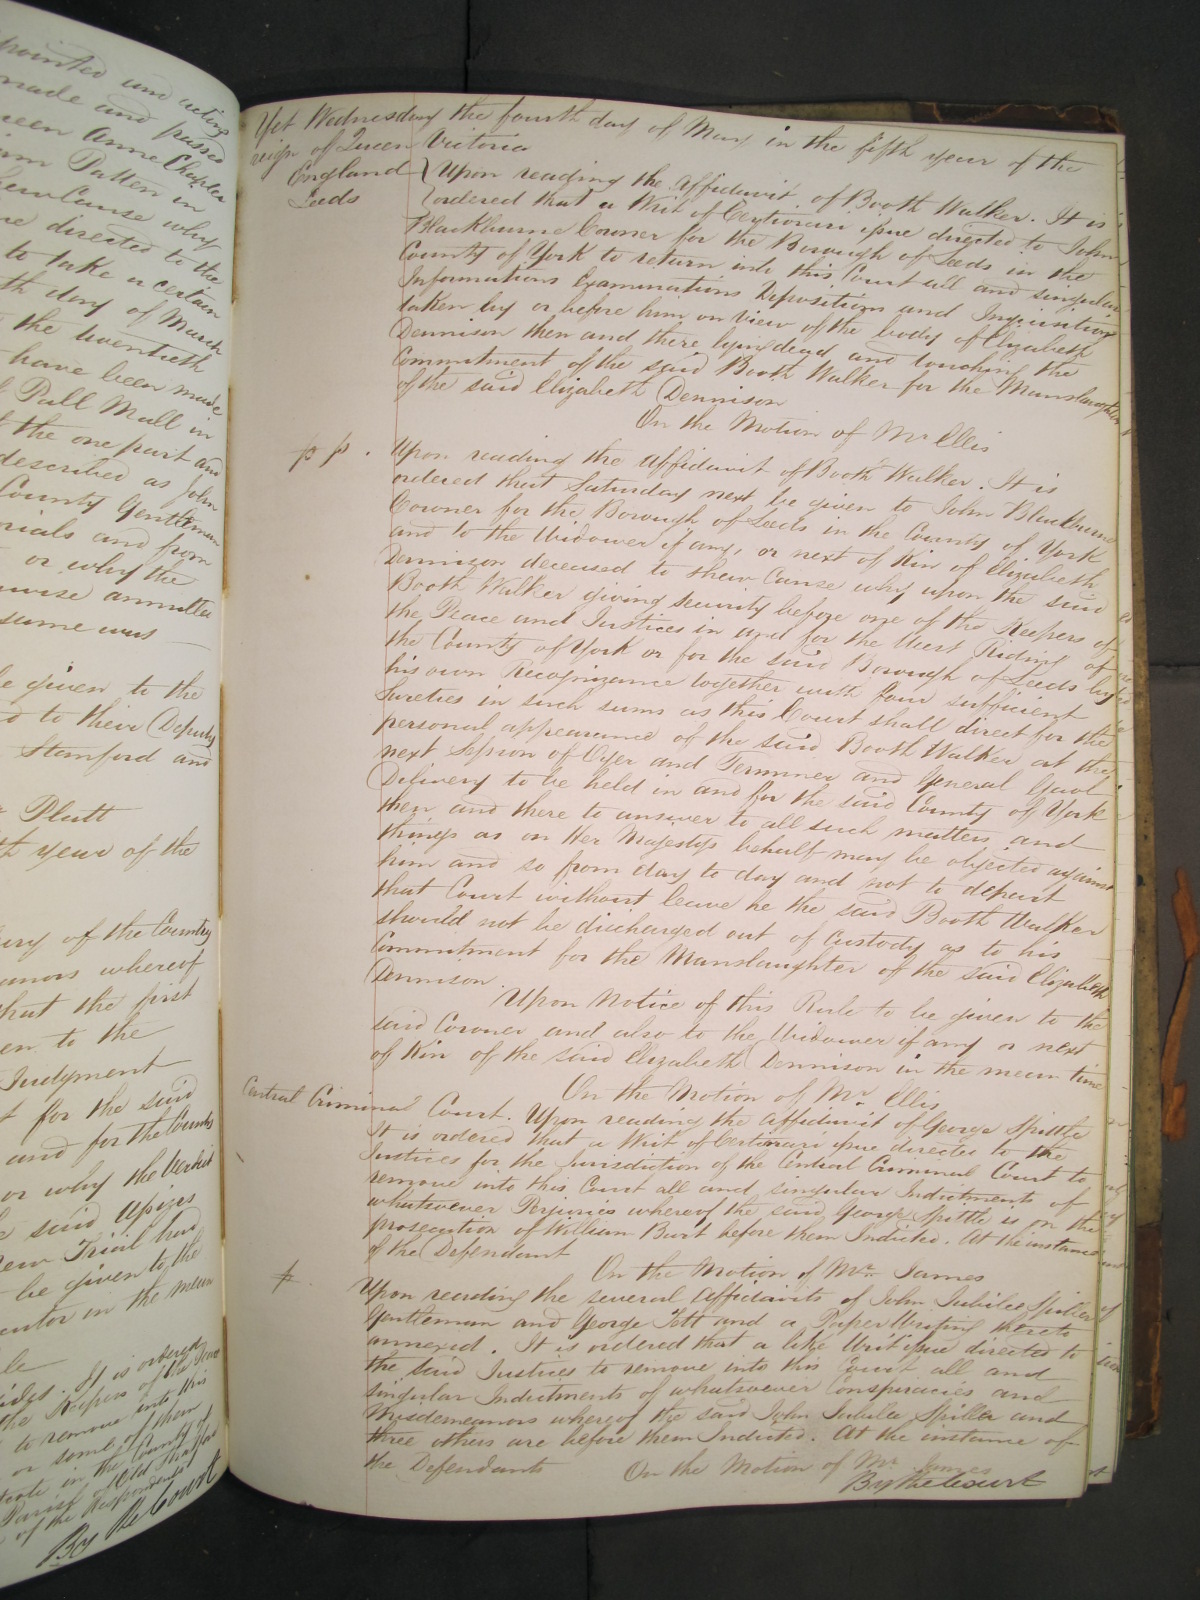 pointed and acting
made and passed
Queen Anne Chapter
Patten in
shew Cause why
directed to the
to take a certain
th day of March
the twentieth
have been made
Pall Mall in
the one part and
described as John
County Gentleman
and from
or why the
annuities
same was
be given to the
to their Deputy
Stamford and
Platt
th year of the
of the Country
whereof
that the first
en to the
Judgment
for the said
and for the County
or why the Verdict
said Assizes
new Trial had
be given to the
in the mean
It is ordered
the Keepers of the Peace
to remove into this
or some of them
in the County of
Parish of Old
of the Respondents
By the Court
Yet Wednesday the fourth day of May in the fifth year of the
reign of Queen Victoria
England
Leeds
Upon reading the Affidavit of Booth Walker. It is
ordered that a Writ of Certiorari issue directed to John
Blackburne Coroner for the Borough of Leeds in the
County of York to return into this Court all and singular
Informations Examinations Depositions and Inquisition
taken by or before him on view of the body of Elizabeth
Dennison then and there lying dead and touching the
Commitment of the said Booth Walker for the Manslaughter
of the said Elizabeth Dennison
On the Motion of Mr Ellis
p p .
Upon reading the affidavit of Booth Walker. It is
ordered that Saturday next be given to John Blackburne
Coroner for the Borough of Leeds in the County of York
and to the Widower if any, or next of Kin of Elizabeth
Dennison deceased to shew Cause why upon the said
Booth Walker giving security before one of the Keepers of
the Peace and Justices in and for the West Riding of
the County of York or for the said Borough of Leeds by
his own Recognizance together with four sufficient
Sureties in such sums as this Court shall direct for the
personal appearance of the said Booth Walker at the
next Session of Oyer and Terminer and General Gaol
Delivery to be held in and for the said County of York
then and there to answer to all such matters and
things as on Her Majestys behalf may be objected against
him and so from day to day and not to depart
that Court without leave he the said Booth Walker
should not be discharged out of custody as to his
Commitment for the Manslaughter of the said Elizabeth
Dennison.
Upon Notice of this Rule to be given to the
said Coroner and also to the Widower if any or next
of Kin of the said Elizabeth Dennison in the mean time
On the Motion of Mr. Ellis
Central Criminal Court. Upon reading the affidavit of George Spittle
It is ordered that a Writ of Certiorari issue directed to the
Justices for the Jurisdiction of the Central Criminal Court to
remove into this Court all and singular Indictments of
whatsoever Perjuries whereof the said George Spittle is on the
prosecution of William Burt before them Indicted. At the instance
of the Defendant
On the Motion of Mr James
p.
Upon reading the several affidavits of John Jubilee Spiller
Gentleman and George Titt and a Paper Writing thereto
annexed. It is ordered that a like Writ issue directed to
the said Justices to remove into this Court all and
singular Indictments of whatsoever Conspiracies and
Misdemeanors whereof the said John Jubilee Spiller and
three others are before them Indicted. At the instance of
the Defendants
On the Motion of Mr James
By the Court